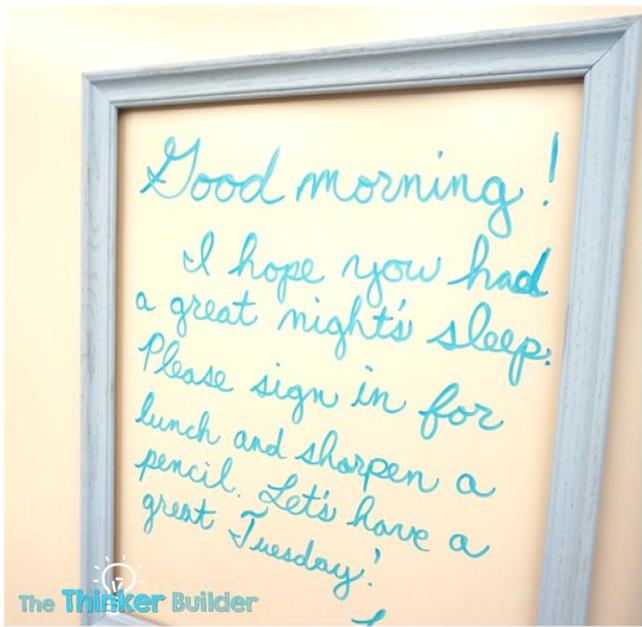 Good morning!
I hope you had
a great night's sleep.
Please sign in for
lunch and sharpen a
pencil. Let's have a
great Tuesday!
The Thinker Builder